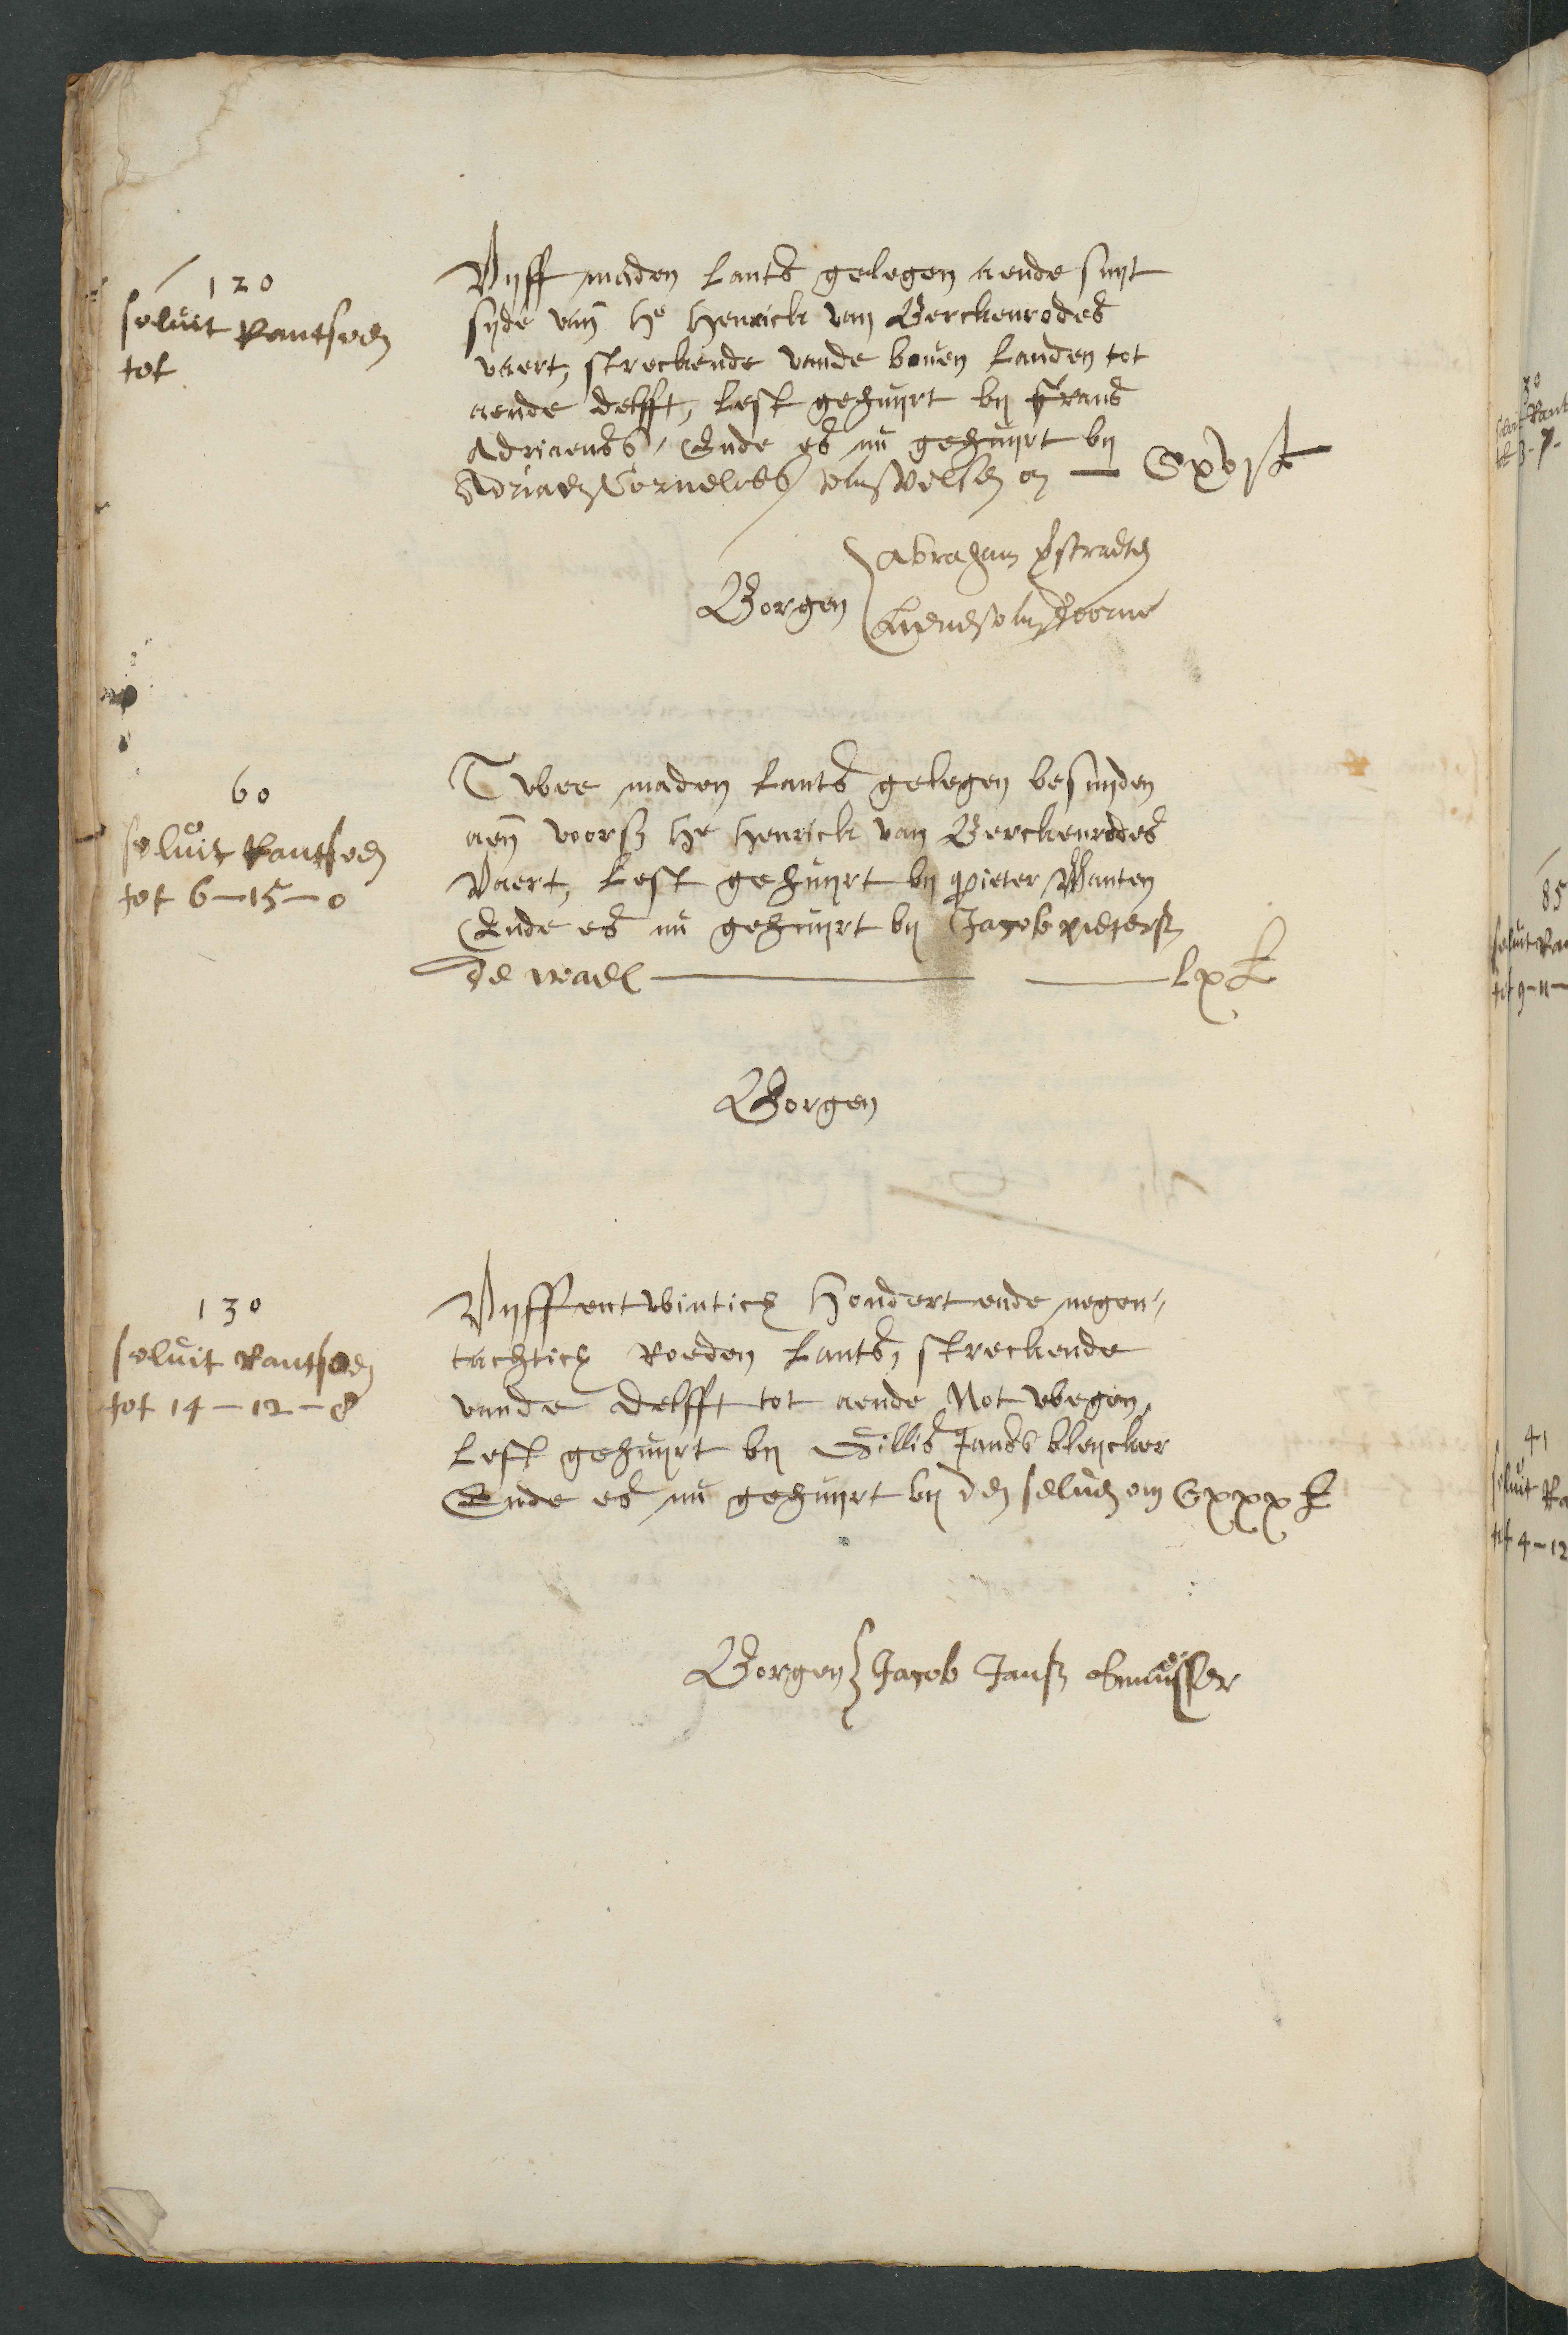 120
soluit Rantsoen
tot
Vyff maden Lants gelegen aende suyt
syde van he Henrick van Berckenrodes
vaert, streckende vande boven Landen tot
aende delfft, Lest gehuyrt by Frans
Adriaenss, Ende es nu gehuyrt by
Adriaen Cornelissz van Velsen om — Cxx £
Abraham
Borgen
60
soluit Rantsoen
tot 6-15-0
Twee maden Lants gelegen besuyden
aen voorsz he Henrick van Berckenrodes
Vaert, Lest gehuyrt by pieter Wanten
Ende es nu gehuyrt by Jacob pietersz
de wael — — Lx £
Borgen
130
soluit Rantsoen
tot 14-12-8
Vyffentwintich Hondert ende negen
tachtich Roeden Lants, streckende
vande delfft tot aende Notwegen,
Lest gehuyrt by Gillis Janss bleycker
Ende es nu gehuyrt by den seluen om Cxxx £
Borgen Jacob Jansz
30
85
soluit
tot 9-11-
41
soluit Ra
tot 4-12